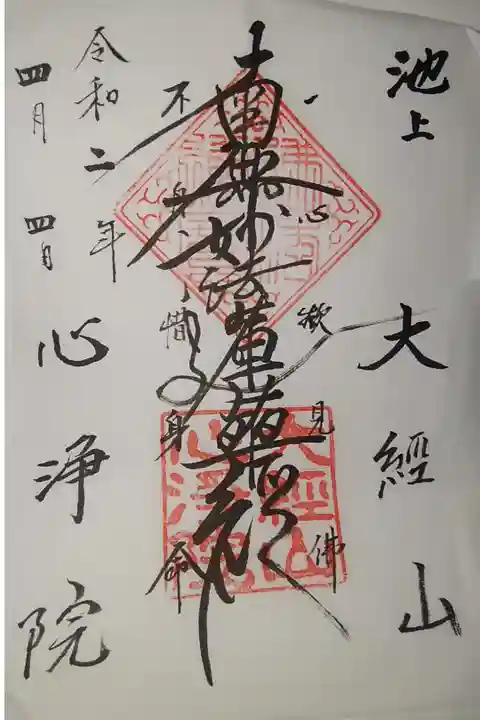 池上
大經山
一心欲見佛
南無妙法蓮華經
不自惜身命
令和二年
四月四日
心浄院
大經山
心浄院